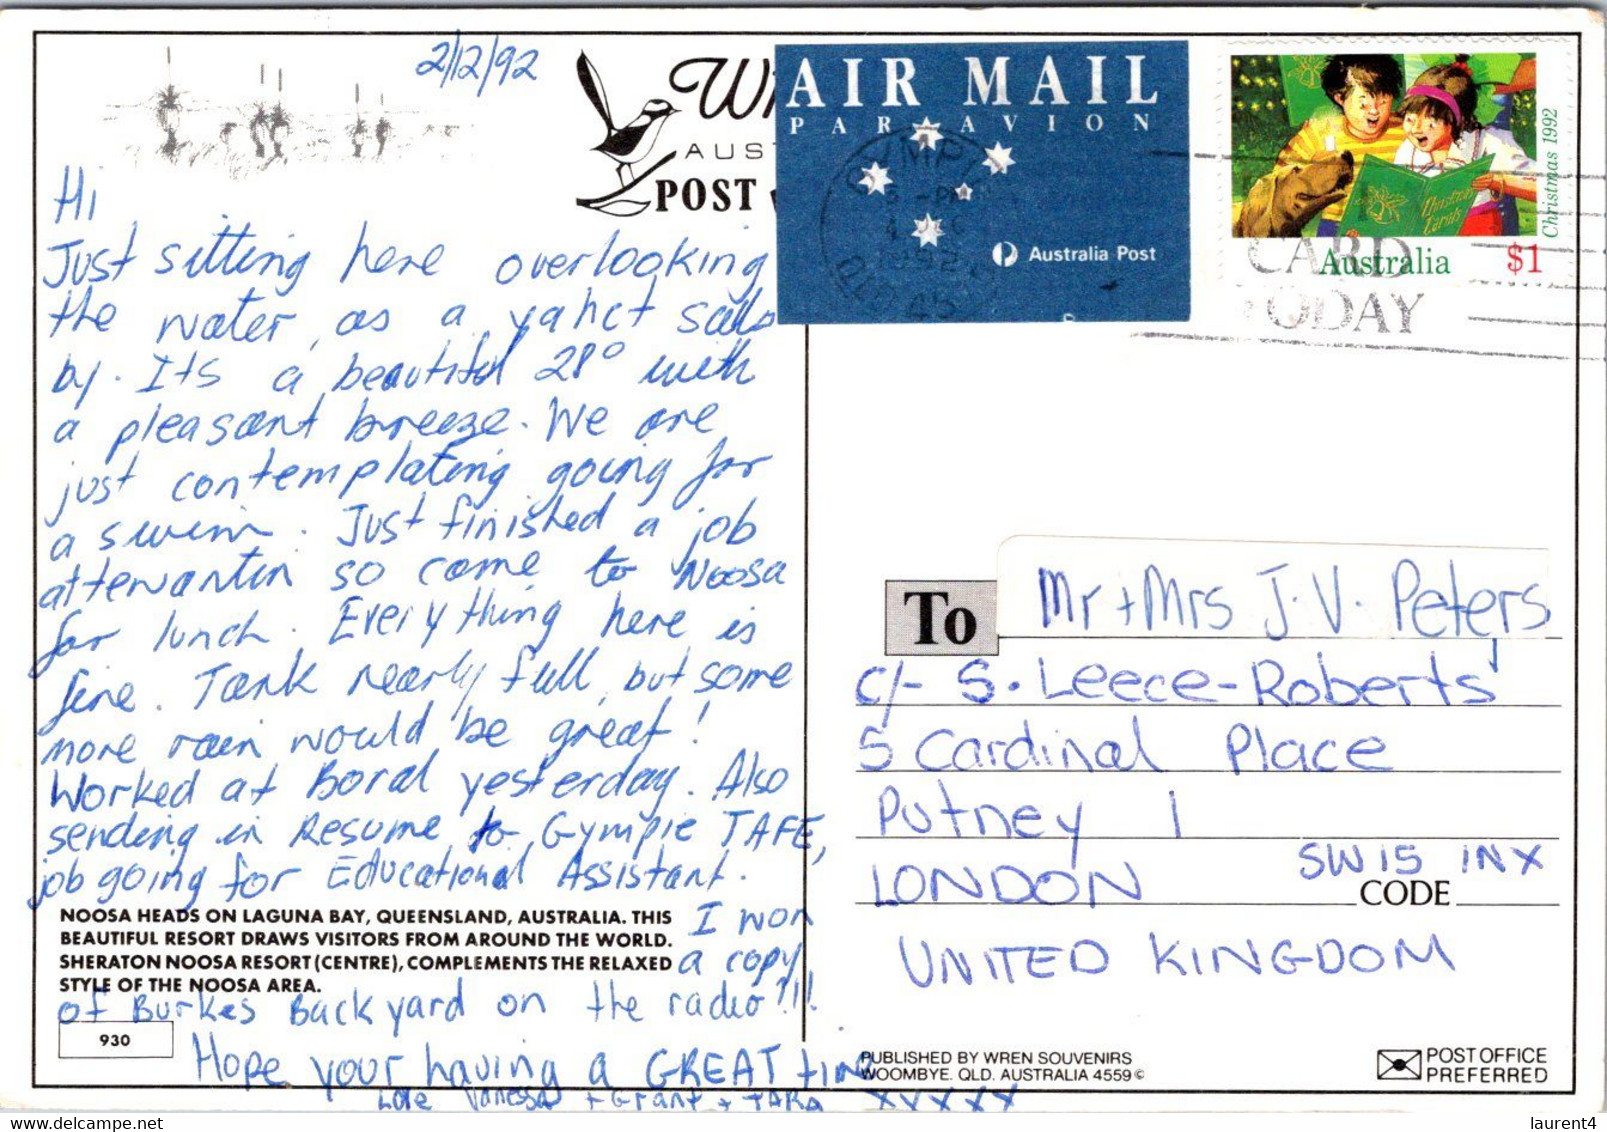 2/12/92
Wr
AUST
POST
AIR MAIL
PAR AVION
GYMPIE
5 -PM
1992
QLD 45
Australia Post
Christmas Carols
Christmas 1992
Australia $1
CARD
TODAY
Hi
Just sitting here overlooking
the water, as a yahct sails
by. Its a beautiful 28° with
a pleasant breeze. We are
just contemplating going for
a swim. Just finished a job
attenvantin so came to Noosa
for lunch. Everything here is
fine. Tank nearly full, but some
more rain would be great!
Worked at Boral yesterday. Also
sending in Resume to Gympie TAFE,
job going for Educational Assistant.
I won
a copy
of Burkes Backyard on the radio!!!
Hope your having a GREAT time
Love Vanessa + Grant + TARA xxxxx
NOOSA HEADS ON LAGUNA BAY, QUEENSLAND, AUSTRALIA. THIS
BEAUTIFUL RESORT DRAWS VISITORS FROM AROUND THE WORLD.
SHERATON NOOSA RESORT (CENTRE), COMPLEMENTS THE RELAXED
STYLE OF THE NOOSA AREA.
930
To
Mr + Mrs J.V. Peters
c/- S. Leece-Roberts
5 Cardinal Place
Putney 1
LONDON
SW15 1NX
CODE
UNITED KINGDOM
PUBLISHED BY WREN SOUVENIRS
WOOMBYE. QLD. AUSTRALIA 4559 ©
POST OFFICE
PREFERRED
laurent4